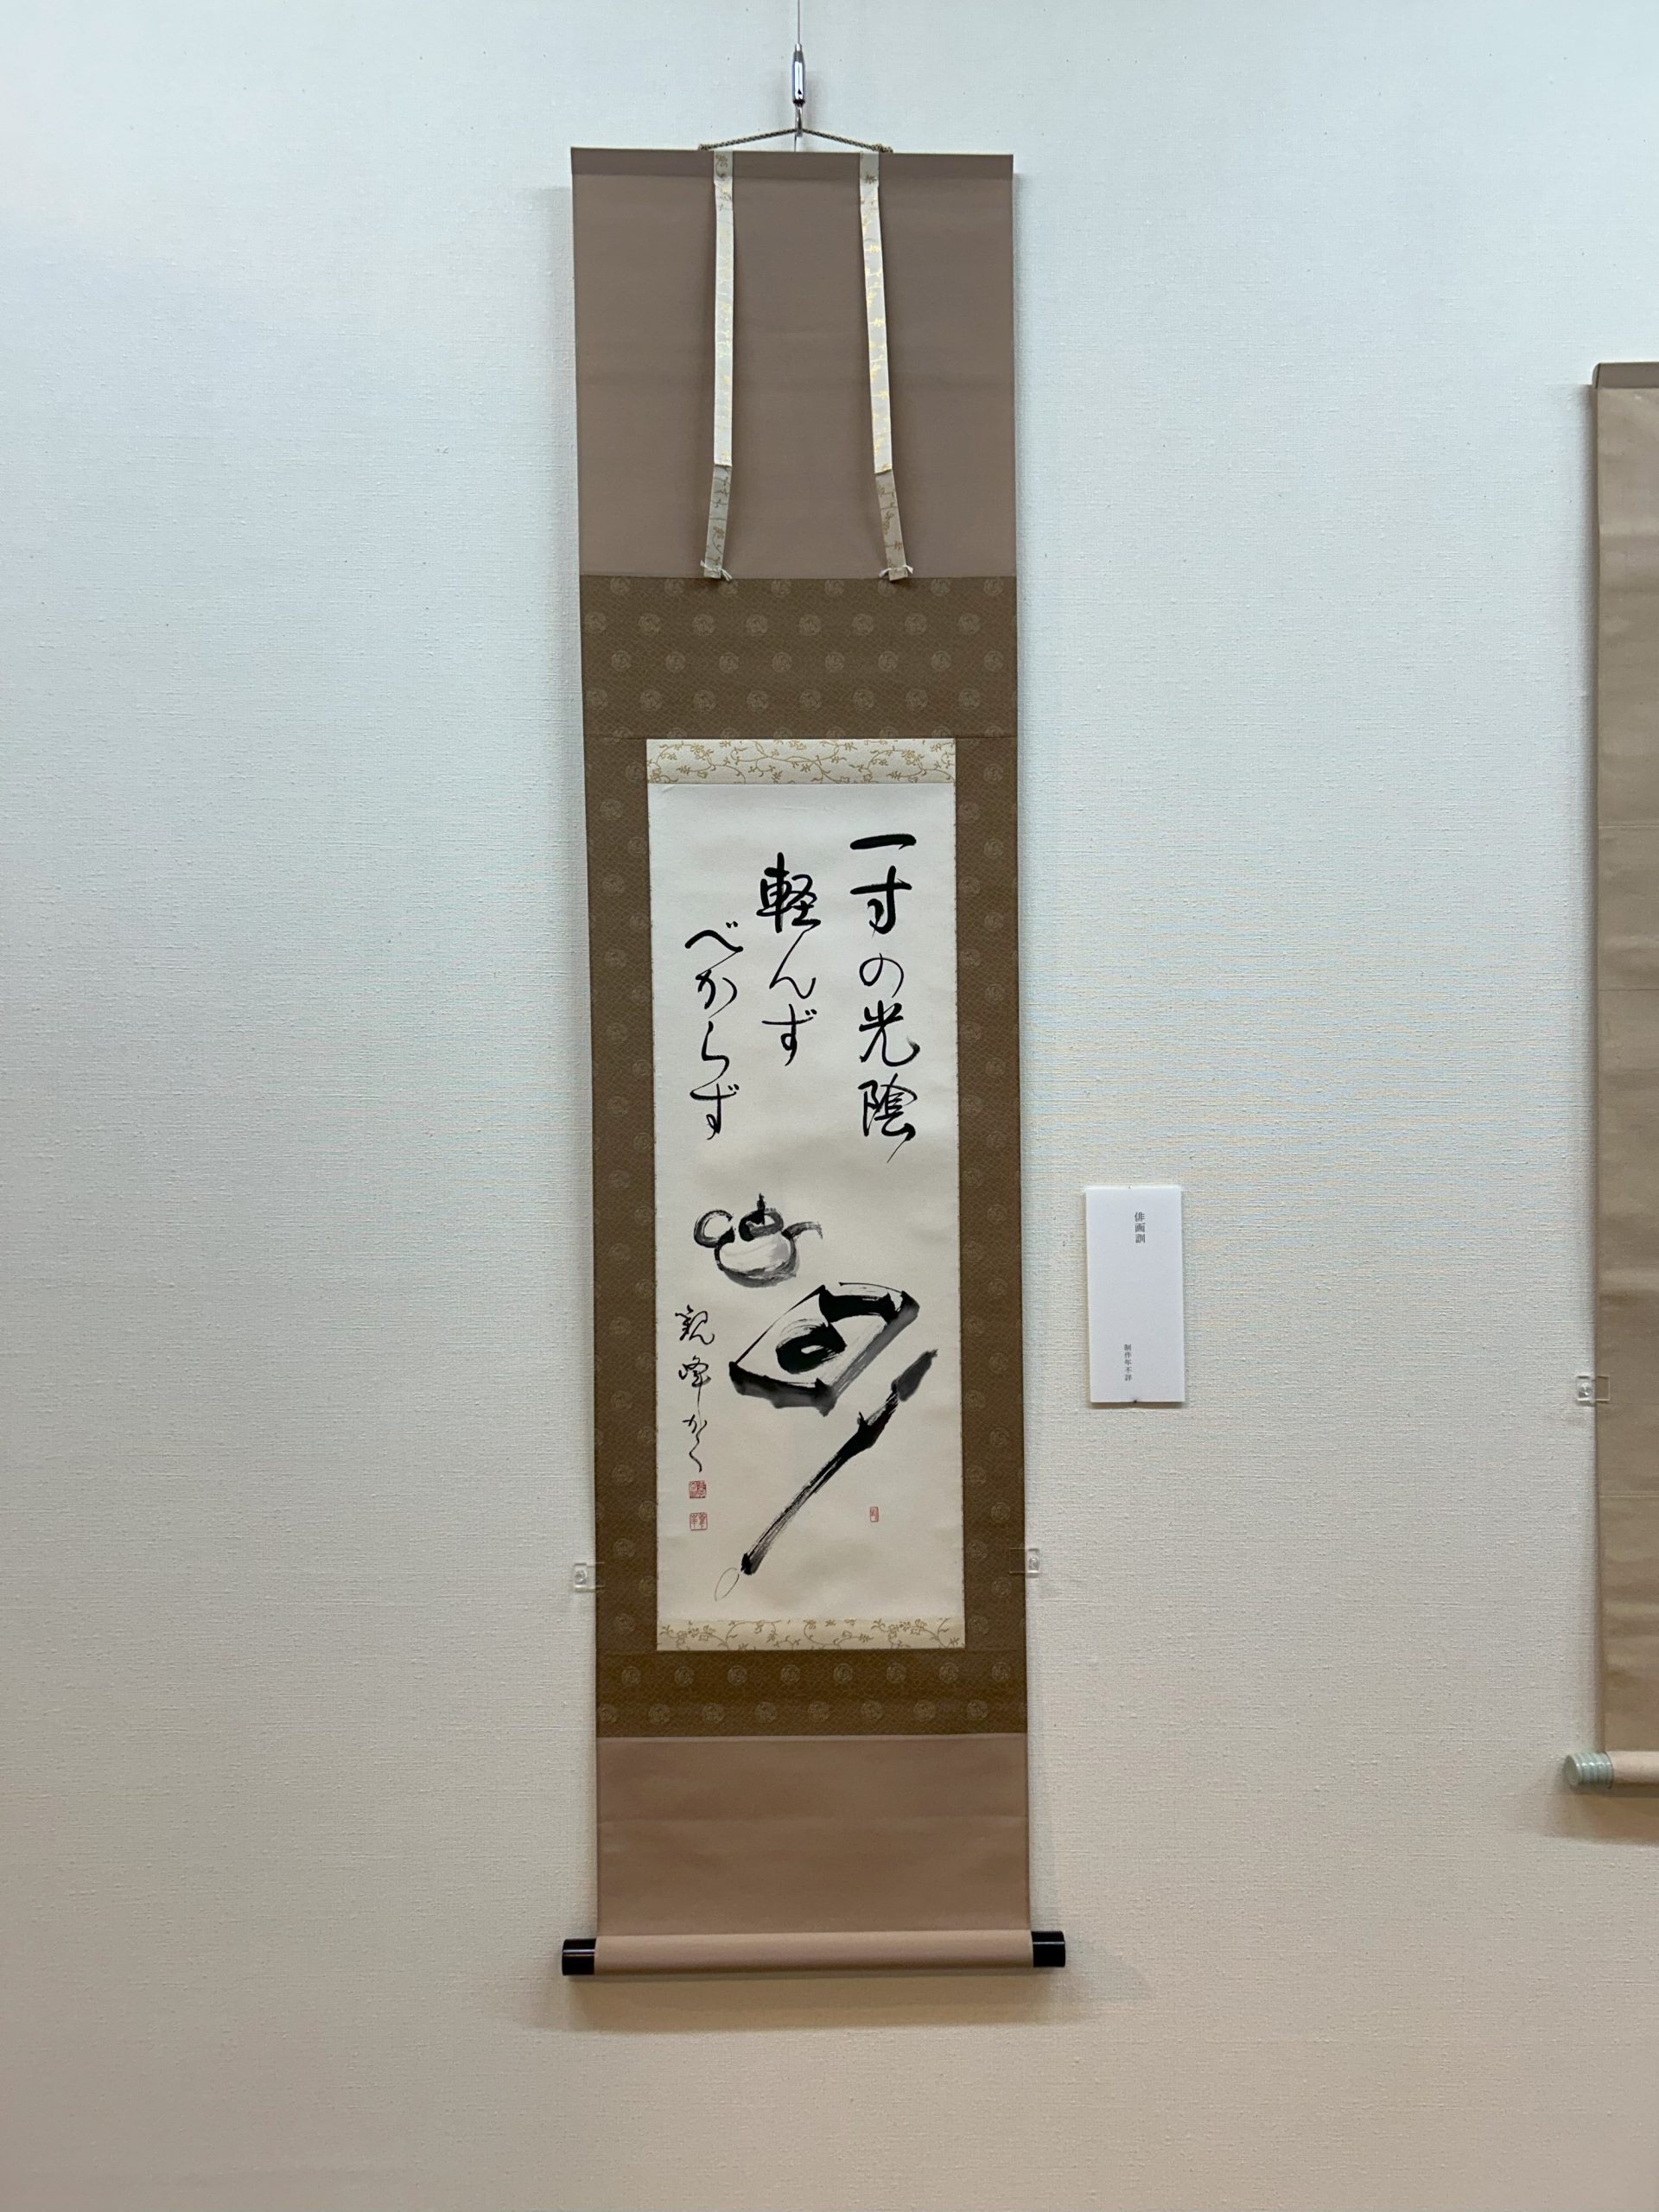 一寸の光陰
軽んず
べからず
観峰かく
俳画訓
制作年不詳